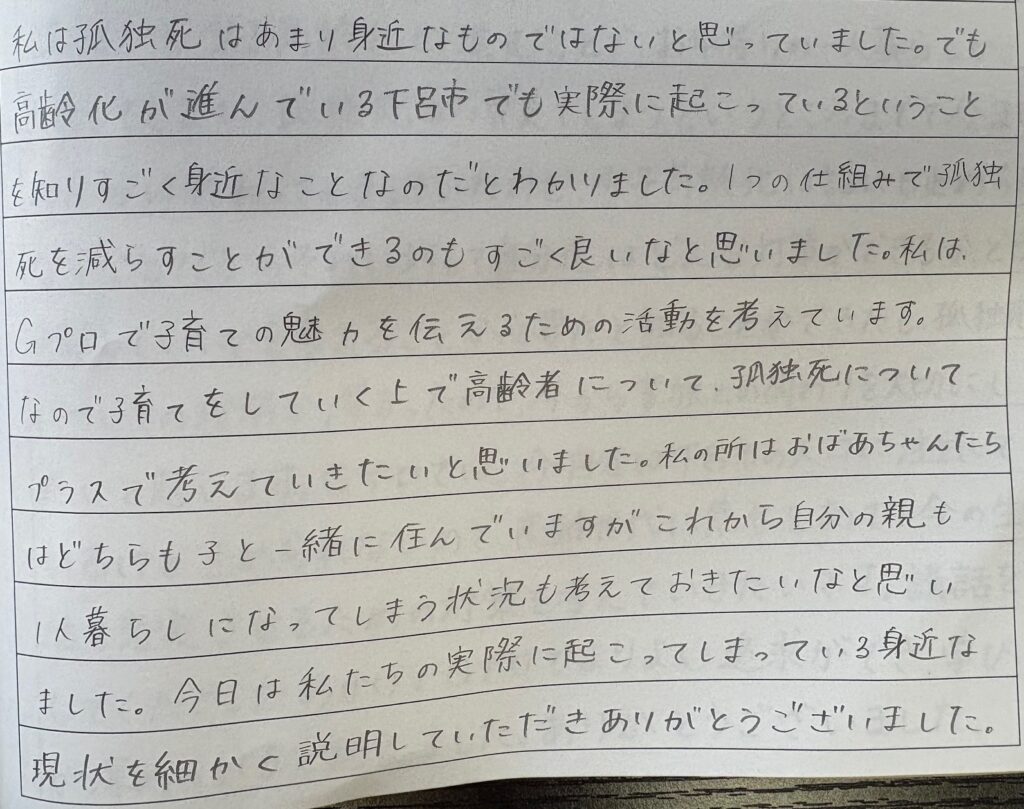 私は孤独死はあまり身近なものではないと思っていました。でも
高齢化が進んでいる下呂市でも実際に起こっているということ
を知りすごく身近なことなのだとわかりました。1つの仕組みで孤独
死を減らすことができるのもすごく良いなと思いました。私は、
Gプロで子育ての魅力を伝えるための活動を考えています。
なので子育てをしていく上で高齢者について、孤独死について
プラスで考えていきたいと思いました。私の所はおばあちゃんたち
はどちらも子と一緒に住んでいますがこれから自分の親も
1人暮らしになってしまう状況も考えておきたいなと思い
ました。今日は私たちの実際に起こってしまっている身近な
現状を細かく説明していただきありがとうございました。